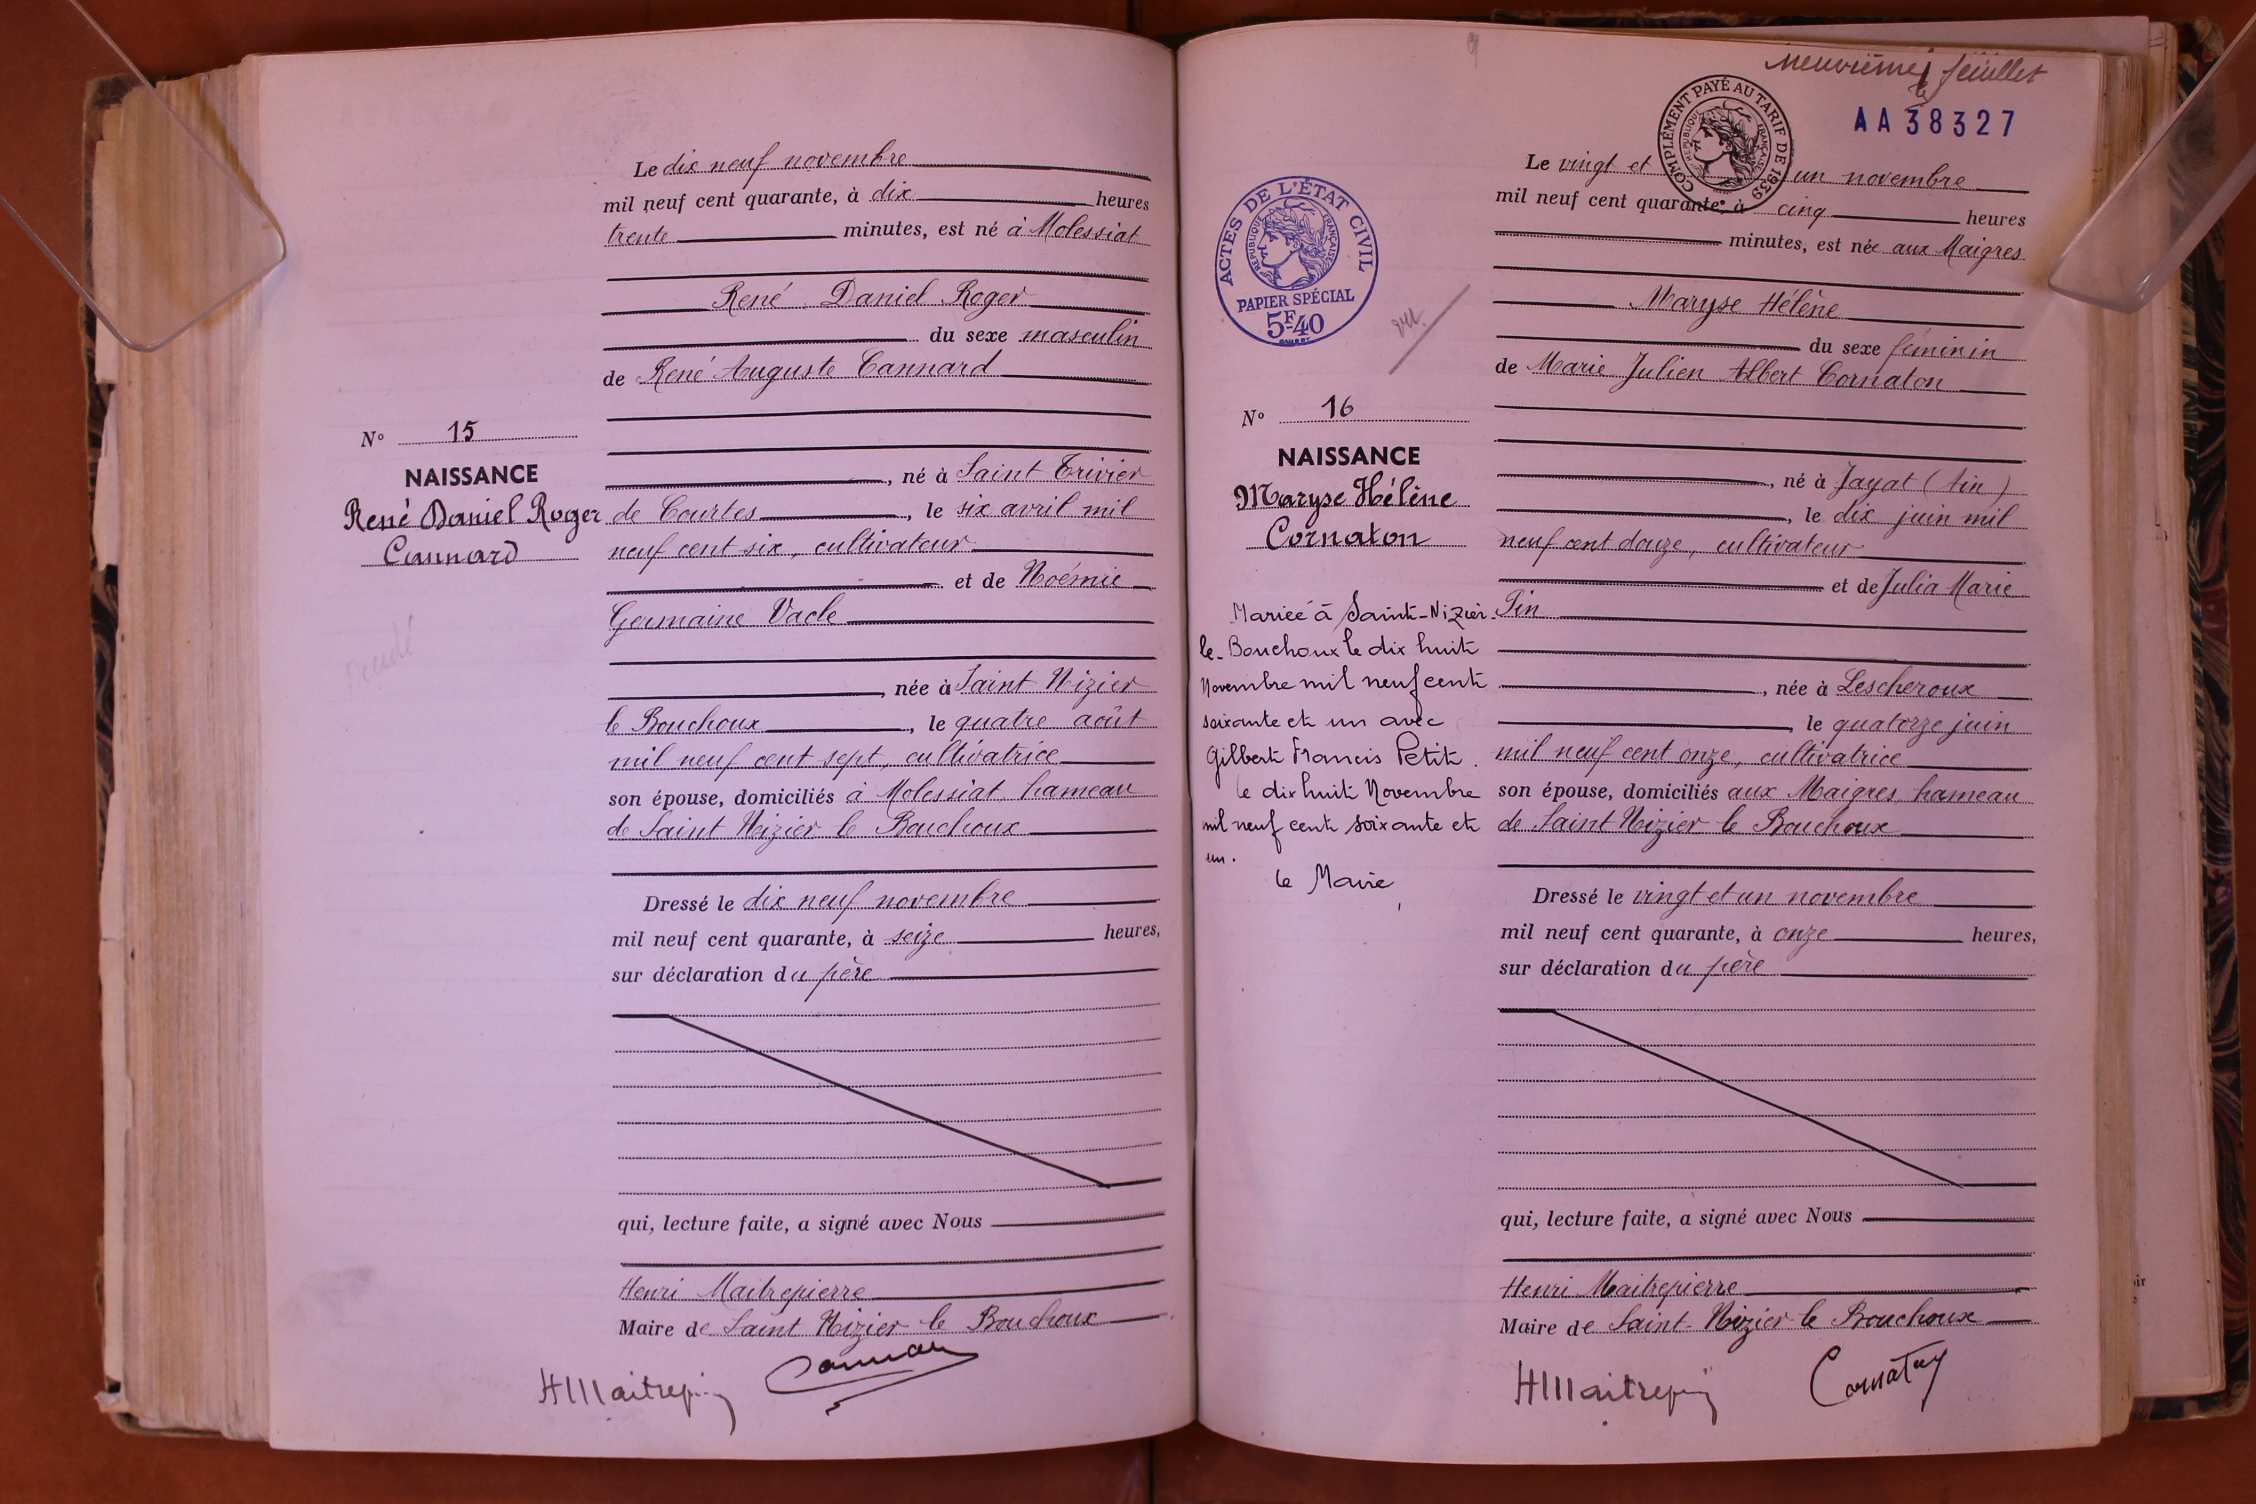 Le dix neuf novembre
mil neuf cent quarante, à dix heures
trente minutes, est né à Molessiat
René Daniel Roger
du sexe masculin
de René Auguste Cannard
N° 15
NAISSANCE
René Daniel Roger
Cannard
, né à Saint Trivier
de Courtes, le six avril mil
neuf cent six, cultivateur
et de Noémie
Germaine Vacle
, née à Saint Nizier
le Bouchoux, le quatre août
mil neuf cent sept, cultivatrice
son épouse, domiciliés à Molessiat, hameau
de Saint Nizier le Bouchoux
Dressé le dix neuf novembre
mil neuf cent quarante, à seize heures,
sur déclaration du père
qui, lecture faite, a signé avec Nous
Henri Maitrepierre
Maire de Saint Nizier le Bouchoux
neuvième feuillet
AA 38327
COMPLÉMENT PAYÉ AU TARIF DE 1939
RÉPUBLIQUE FRANÇAISE
ACTES DE L'ÉTAT CIVIL
RÉPUBLIQUE FRANÇAISE
PAPIER SPÉCIAL
5F40
vu.
Le vingt et un novembre
mil neuf cent quarante, à cinq heures
minutes, est née aux Maigres
Maryse Hélène
du sexe féminin
de Marie Julien Albert Cornaton
N° 16
NAISSANCE
Maryse Hélène
Cornaton
Mariée à Saint-Nizier-
le-Bouchoux le dix huit
Novembre mil neuf cent
soixante et un avec
Gilbert Francis Petit.
le dix huit Novembre
mil neuf cent soixante et
un.
le Maire,
, né à Jayat (Ain)
, le dix juin mil
neuf cent douze, cultivateur
et de Julia Marie
Pin
, née à Lescheroux
, le quatorze juin
mil neuf cent onze, cultivatrice
son épouse, domiciliés aux Maigres, hameau
de Saint Nizier le Bouchoux
Dressé le vingt et un novembre
mil neuf cent quarante, à onze heures,
sur déclaration du père
qui, lecture faite, a signé avec Nous
Henri Maitrepierre
Maire de Saint-Nizier le Bouchoux